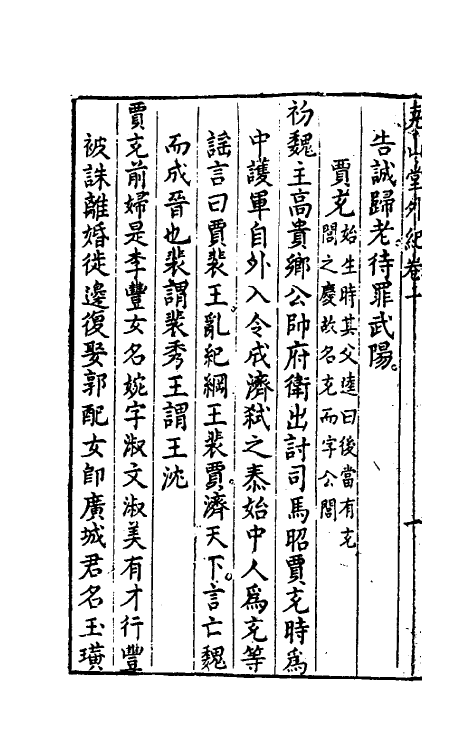 堯山堂外紀卷十 一
告誠歸老待罪武陽
賈充始生時其父逵曰後當有充
閭之慶故名充而字公閭
初魏主高貴鄉公帥府衛出討司馬昭賈充時爲
中護軍自外入令成濟弒之泰始中人爲充等
謠言曰賈裴王亂紀綱王裴賈濟天下言亡魏
而成晉也裴謂裴秀王謂王沈
賈充前婦是李豐女名婉字淑文淑美有才行豐
被誅離婚徙邊復娶郭配女卽廣城君名玉璜